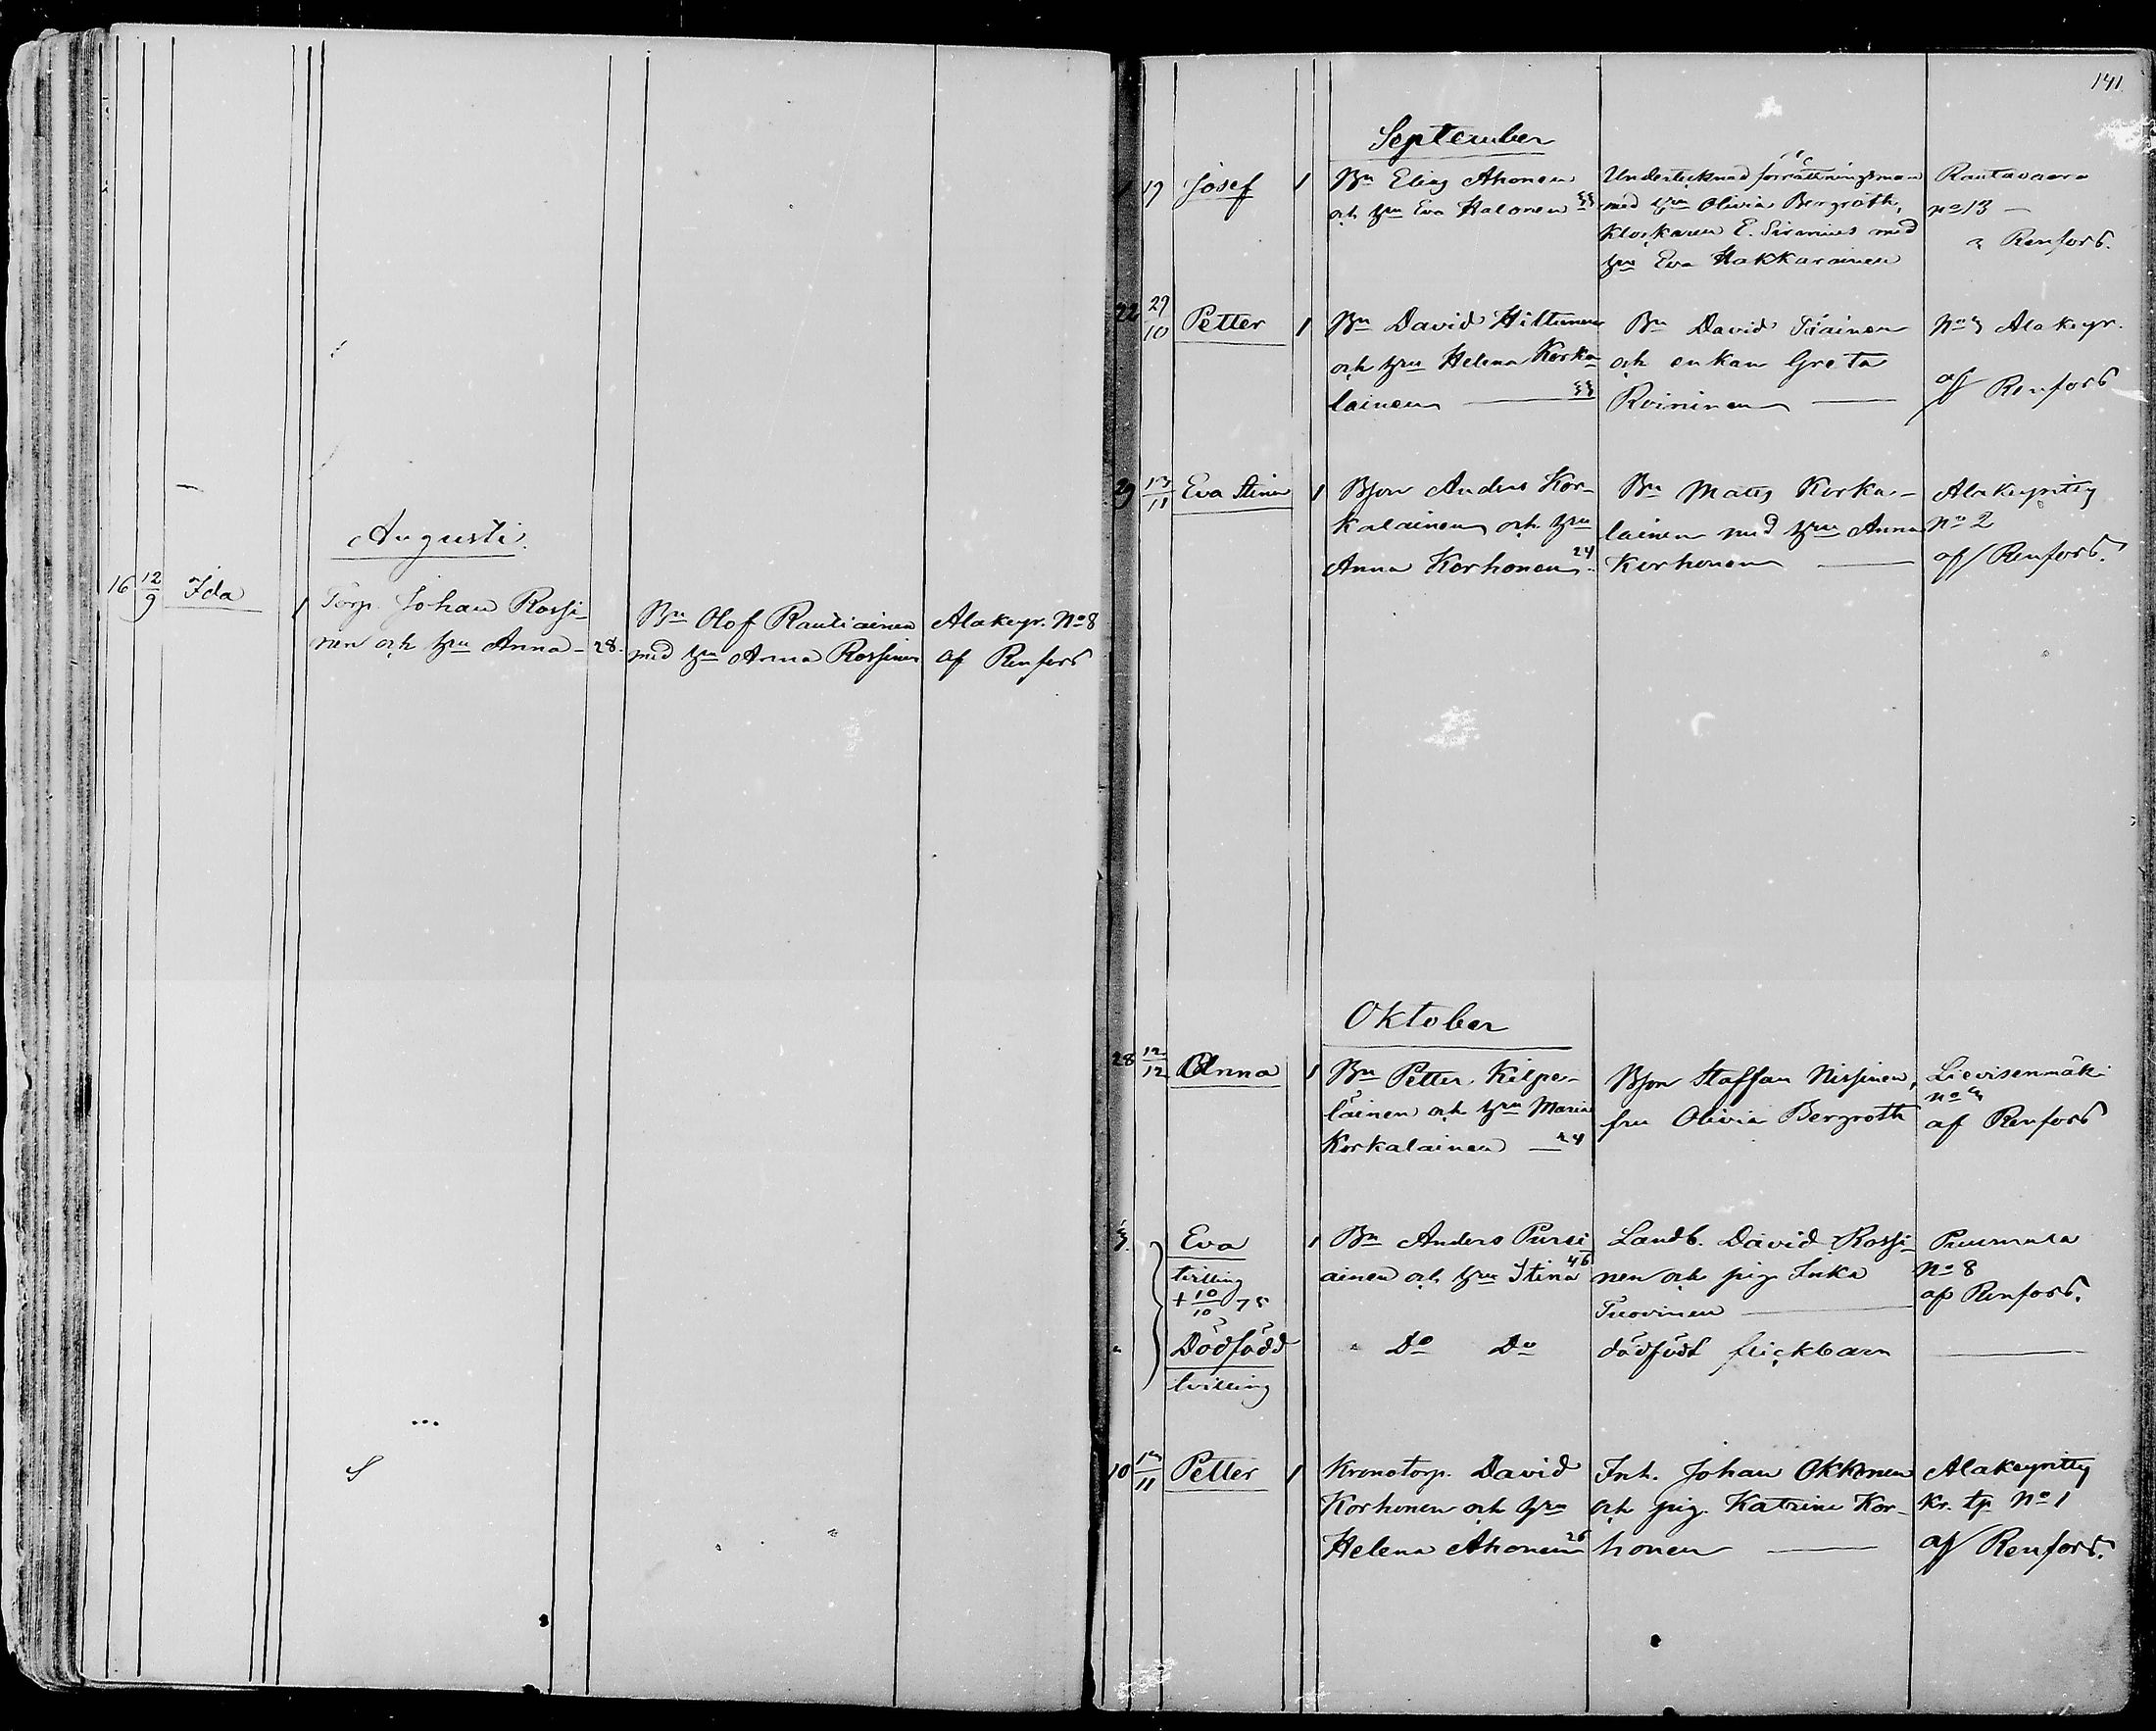 Augusti.
16 12/9 Ida 1 Torp. Johan Rossi-
nen och hru Anna - 28.
Bn Olof Rautiainen
med hru Anna Rossinen
Alakeyr. No 8
af Renfors
141
September
17 Josef 1 Bn Elias Ahonen
och hru Eva Halonen 33
Undertecknad förrättningsman
med hru Olivia Bergroth,
Klockaren E. Sirenius med
hru Eva Hakkarainen
Rautavaara
no 13 —
a Renfors.
22 29/10 Petter 1 Bn David Hiltunen
och hru Helena Korka-
lainen — 33
Bn David Tiainen
och enkan Greta
Roininen —
No 3 Alakeyr.
af Renfors
29 13/11 Eva Stina 1 Bjon Anders Kor-
kalainen och hru
Anna Korhonen 24.
Bn Mats Korka-
lainen med hru Anna
Korhonen —
Alakeyritty
No 2
af Renfors.
Oktober
28 12/12 Anna 1 Bn Petter Kilpe-
läinen och hru Maria
Korkalainen — 24
Bjon Staffan Nissinen,
fru Olivia Bergroth
Lievisenmäki
no 3
af Renfors
3. Eva 1 Bn Anders Pursi-
ainen och hru Stina 46
tvilling
+ 10/10 75
Landb. David Rossi-
nen och pig. Inka
Tuovinen —
Puumala
No 8
af Renfors.
" Dödfödd " Do Do dödfödt flickbarn —
tvilling
10 Petter 1 Kronotorp. David
Korhonen och hru
Helena Ahonen 26
Inh. Johan Okkonen
och pig. Katrina Kor-
honen —
Alakeyritty
Kr. tp No 1
af Renfors.